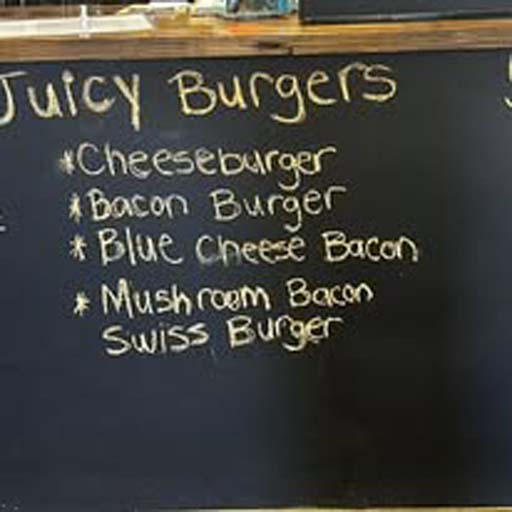 Juicy Burgers
*Cheeseburger
*Bacon Burger
*Blue Cheese Bacon
*Mushroom Bacon
Swiss Burger